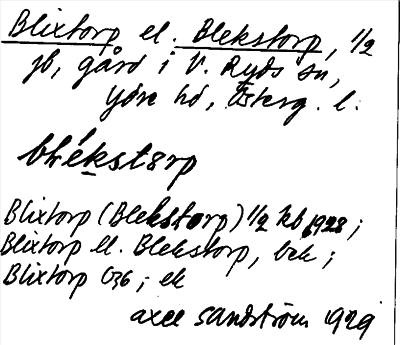 Blixtorp el. Blekstorp, 1/2
jb, gård i V. Ryds sn,
Ydre hd, Österg. l.
blékstərp
Blixtorp (Blekstorp) 1/2 kb 1928;
Blixtorp el. Blekstorp, bek;
Blixtorp G36; ek
Axel Sandström 1929